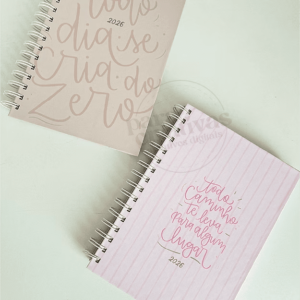 todo
2026
dia se
cria do
zero
todo
caminho
te leva
para algum
lugar
2026